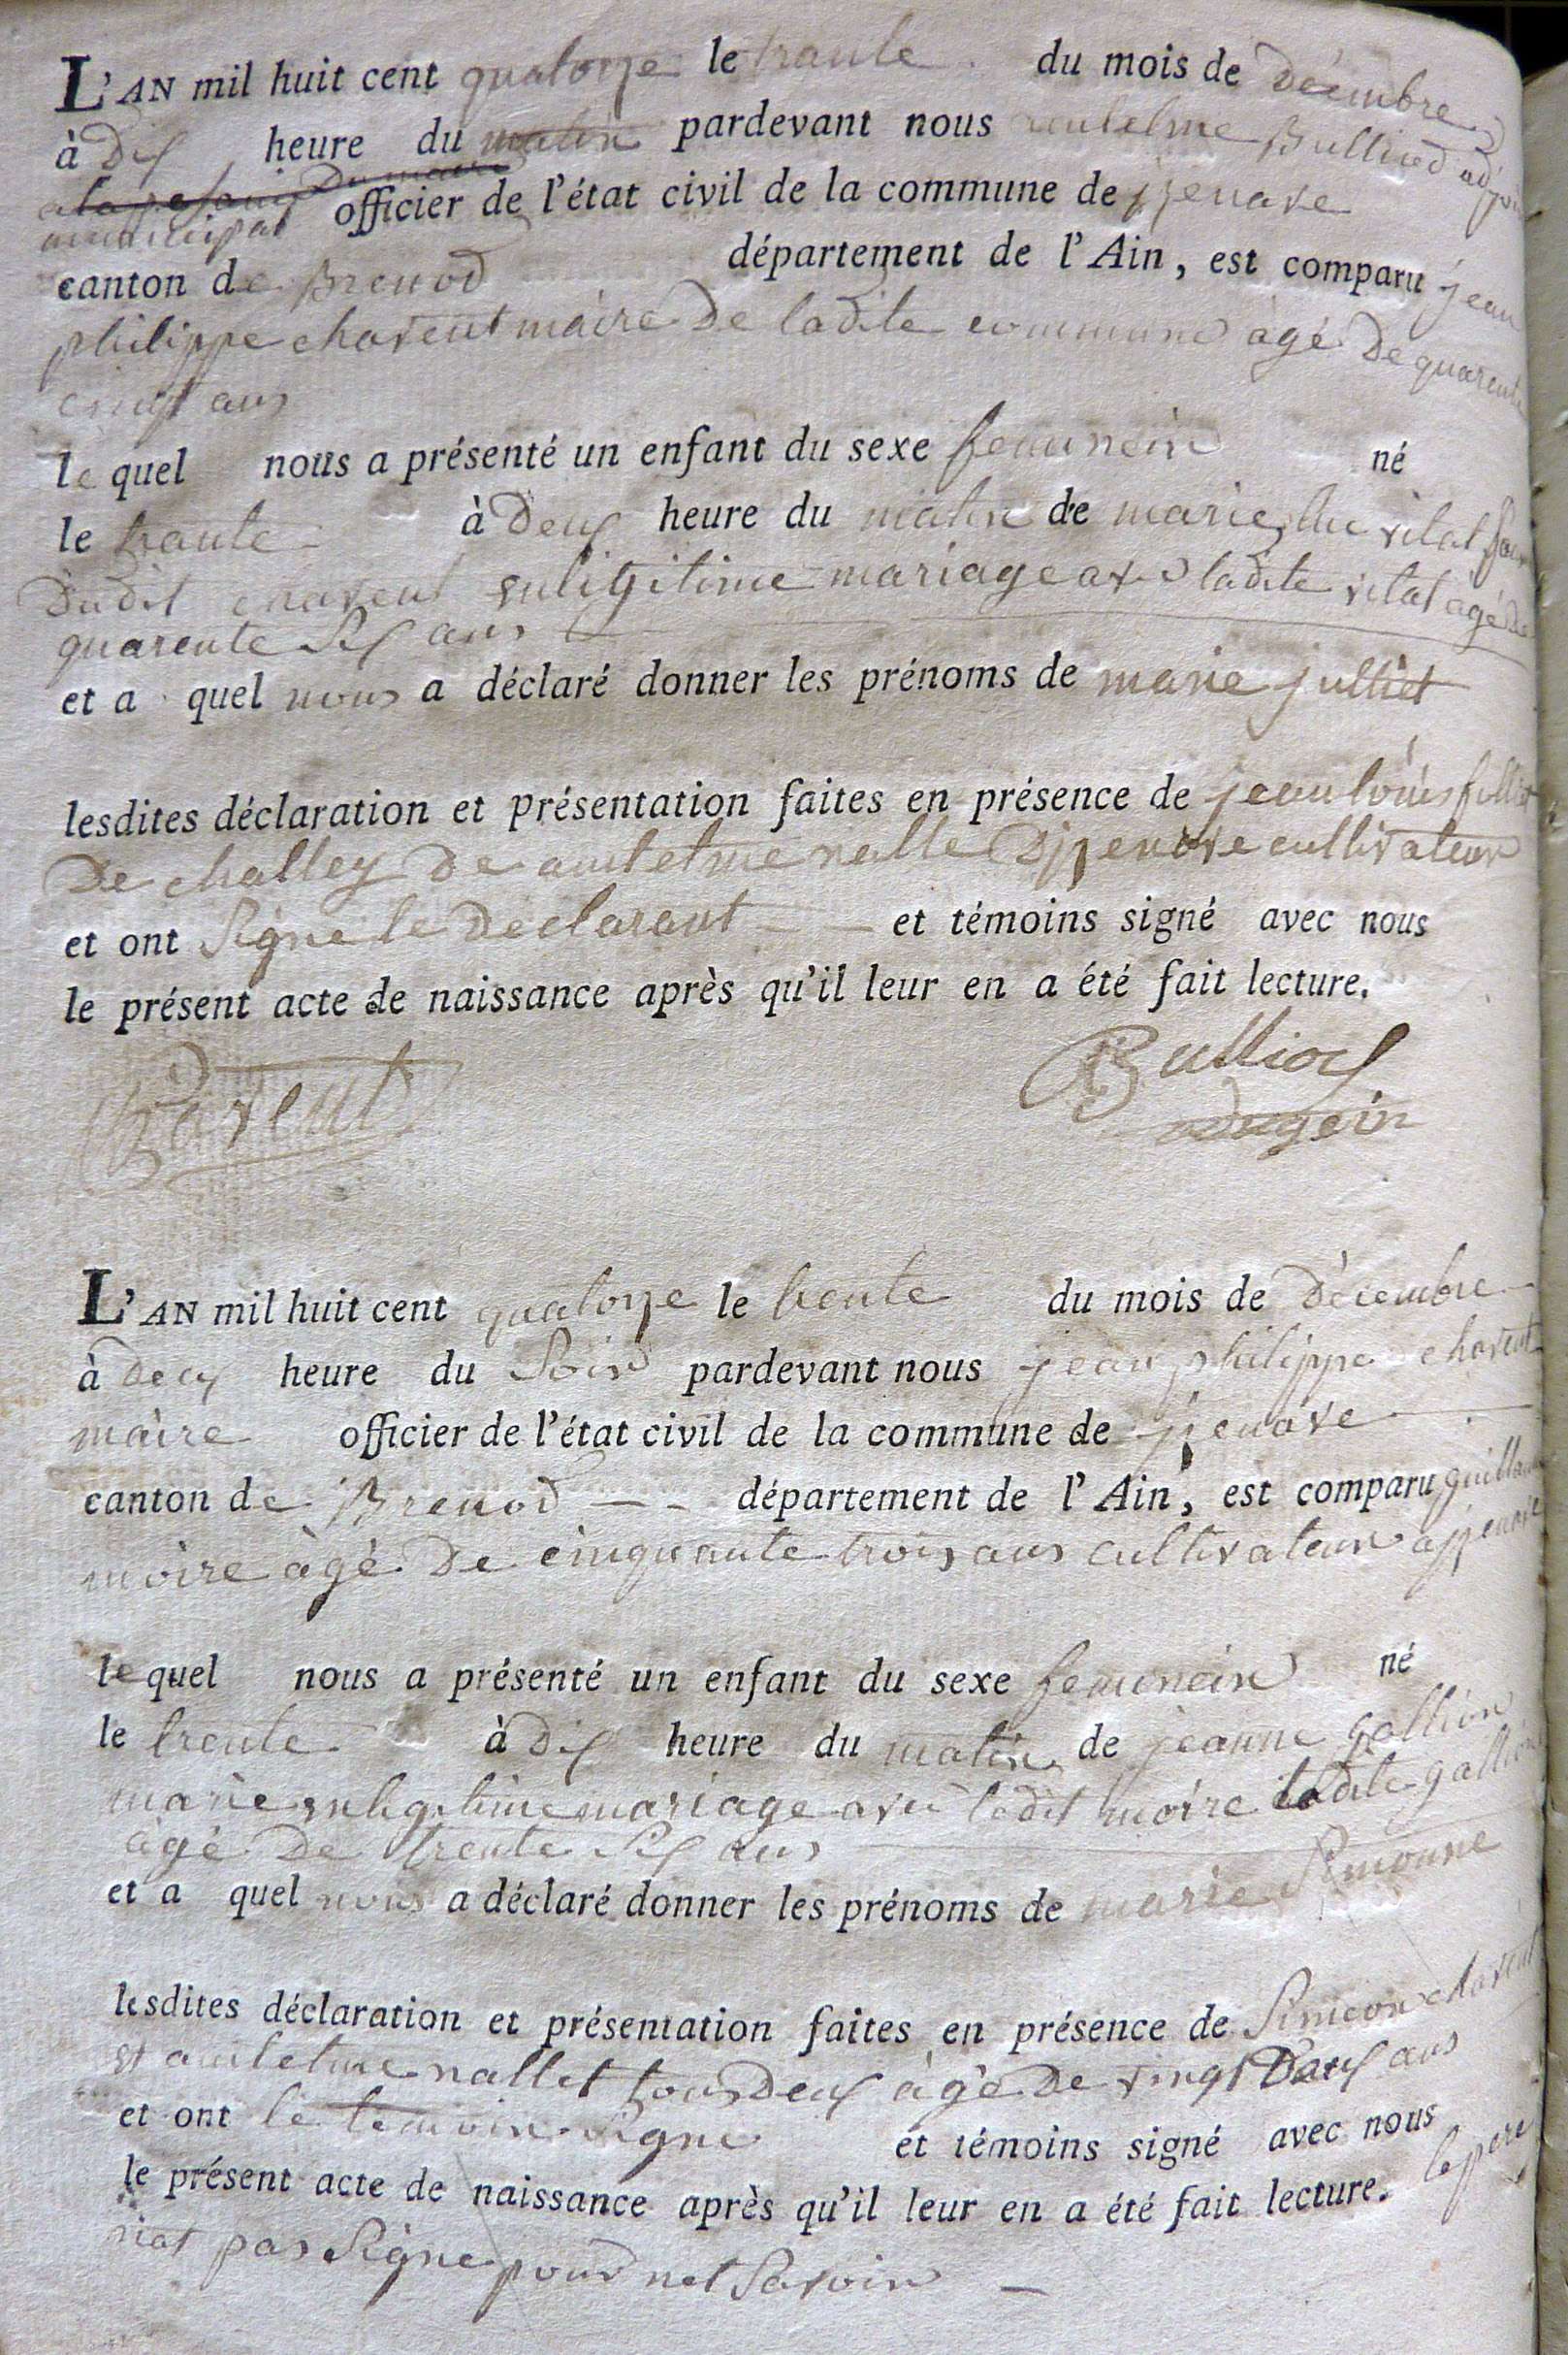 L'AN mil huit cent quatorze le trante du mois de décembre
à dix heure du matin pardevant nous antelme Bulliod adjoin
du maire
municipal officier de l'état civil de la commune de izenave
canton de Brenod département de l'Ain, est comparu jean
philippe chavent màire de ladite commune àgé de quarente
cinq ans
le quel nous a présenté un enfant du sexe femminein né
le trante à deux heure du matin de marie vilat
dudit chavent en ligitime mariage avec ladite vilat àgé de
quarente six ans
et a quel nous a déclaré donner les prénoms de marie julliet
lesdites déclaration et présentation faites en présence de jean loùis
de challey de antelme nalle dizenave cultivateur
et ont signe le declarant et témoins signé avec nous
le présent acte de naissance après qu'il leur en a été fait lecture.
Chavent Bulliod
L'AN mil huit cent quatorze le trente du mois de décembre
à deux heure du soir pardevant nous jean philippe chavent
màire officier de l'état civil de la commune de izenave
canton de Brenod département de l'Ain, est comparu guillaume
moire àgé de cinquante trois ans cultivateur a izenave
le quel nous a présenté un enfant du sexe feminein né
le trente à dix heure du matin de jeanne gallion
marie en legitime mariage avec ledit moire ladite gallion
àgé de trente six ans
et a quel nous a déclaré donner les prénoms de marie simonne
lesdites déclaration et présentation faites en présence de simeon chavent
et antelme nallet tous deux àgé de vingt deux ans
et ont le temoin signe et témoins signé avec nous
le présent acte de naissance après qu'il leur en a été fait lecture. le pere
nat pas signe pour net savoir